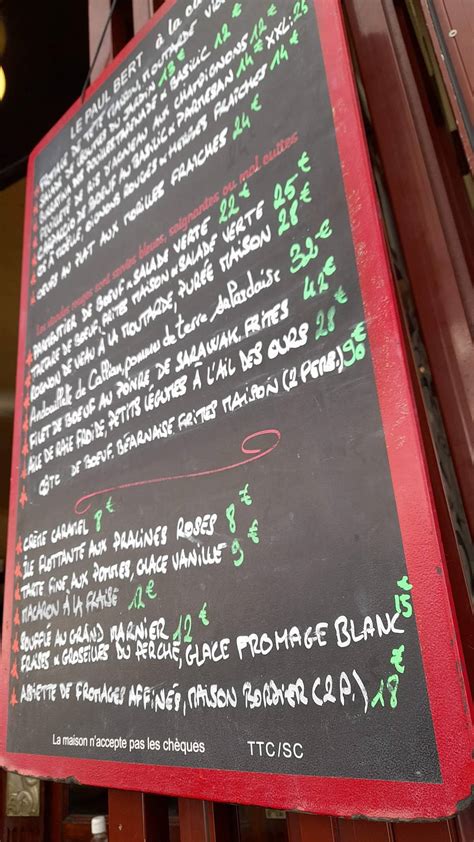 LE PAUL BERT à la
FROMAGE DE TÊTE MAISON, MOUTARDE
13 €
BASILIC 12 €
D'AGNEAU AUX CHAMPIGNONS 12 €
CARPACCIO DE BOEUF AU BASILIC & PARMESAN 14 € XXL: 25
OS À MOELLE, OIGNONS ROUGES & HERBES FRAÎCHES 14 €
OEUFS AU PLAT AUX MORILLES FRAICHES 24 €
Les viandes rouges sont servies bleues, saignantes ou mal cuites
PARMENTIER DE BOEUF & SALADE VERTE 22 €
TARTARE DE BOEUF, FRITES MAISON & SALADE VERTE 25 €
ROGNON DE VEAU À LA MOUTARDE, PURÉE MAISON 28 €
Andouillette de pommes de terre 32 €
FILET DE BOEUF AU POIVRE DE SARAWAK, FRITES 42 €
AILE DE RAIE FROIDE, PETITS LÉGUMES À L'AIL DES OURS 28 €
CÔTE DE BOEUF, BÉARNAISE FRITES MAISON (2 PERS) 90 €
CRÈME CARAMEL 8 €
ÎLE FLOTTANTE AUX PRALINES ROSES 8 €
TARTE FINE AUX POMMES, GLACE VANILLE 9 €
MACARON À LA FRAISE 12 €
SOUFFLÉ AU GRAND MARNIER 12 €
FRAISES & GROSEILLES DU PERCHE, GLACE FROMAGE BLANC 15 €
ASSIETTE DE FROMAGES AFFINÉS, MAISON BORDIER (2 P.) 18 €
La maison n'accepte pas les chèques TTC/SC